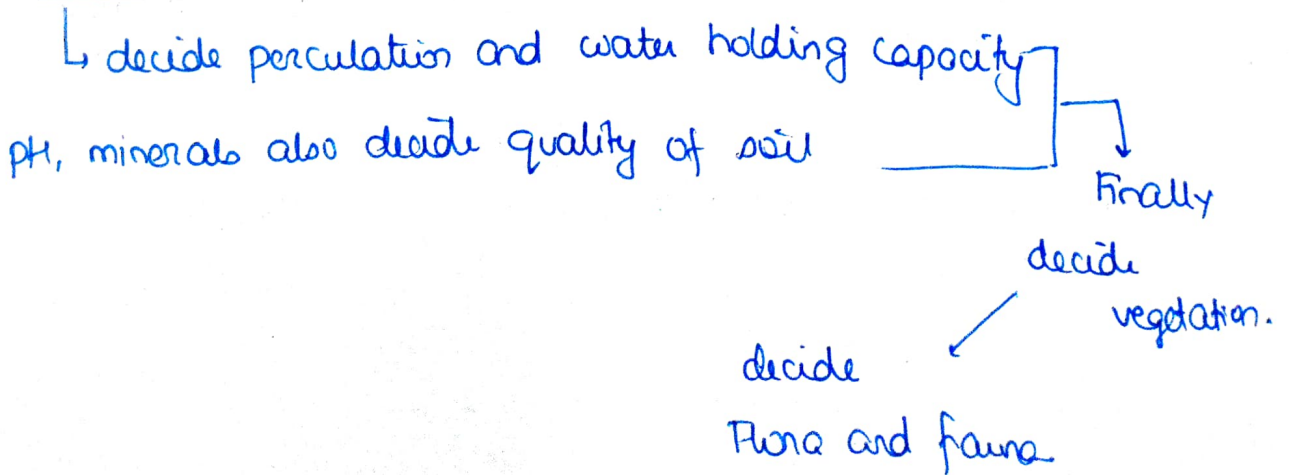 ↳ decide perculation and water holding capacity
pH, minerals also decide quality of soil
Finally
decide
vegetation.
decide
Flora and fauna